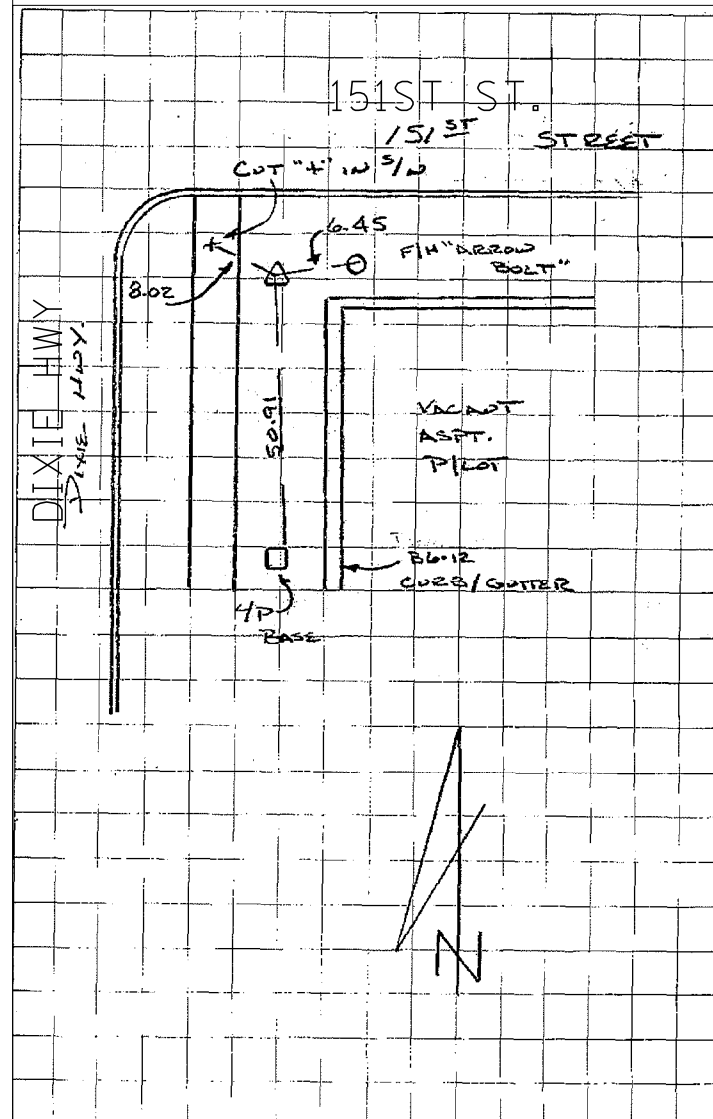 151ST ST.
151 ST STREET
CUT "+" IN S/W
6.45
F/H "ARROW
BOLT"
8.02
DIXIE HWY
DIXIE HWY.
50.91
VACANT
ASPT.
P/LOT
B6-12
CURB/GUTTER
4/P
BASE
N